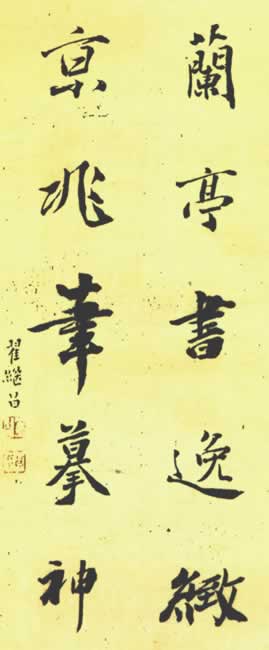 蘭亭書逸緻
京兆筆摹神
翟繼召